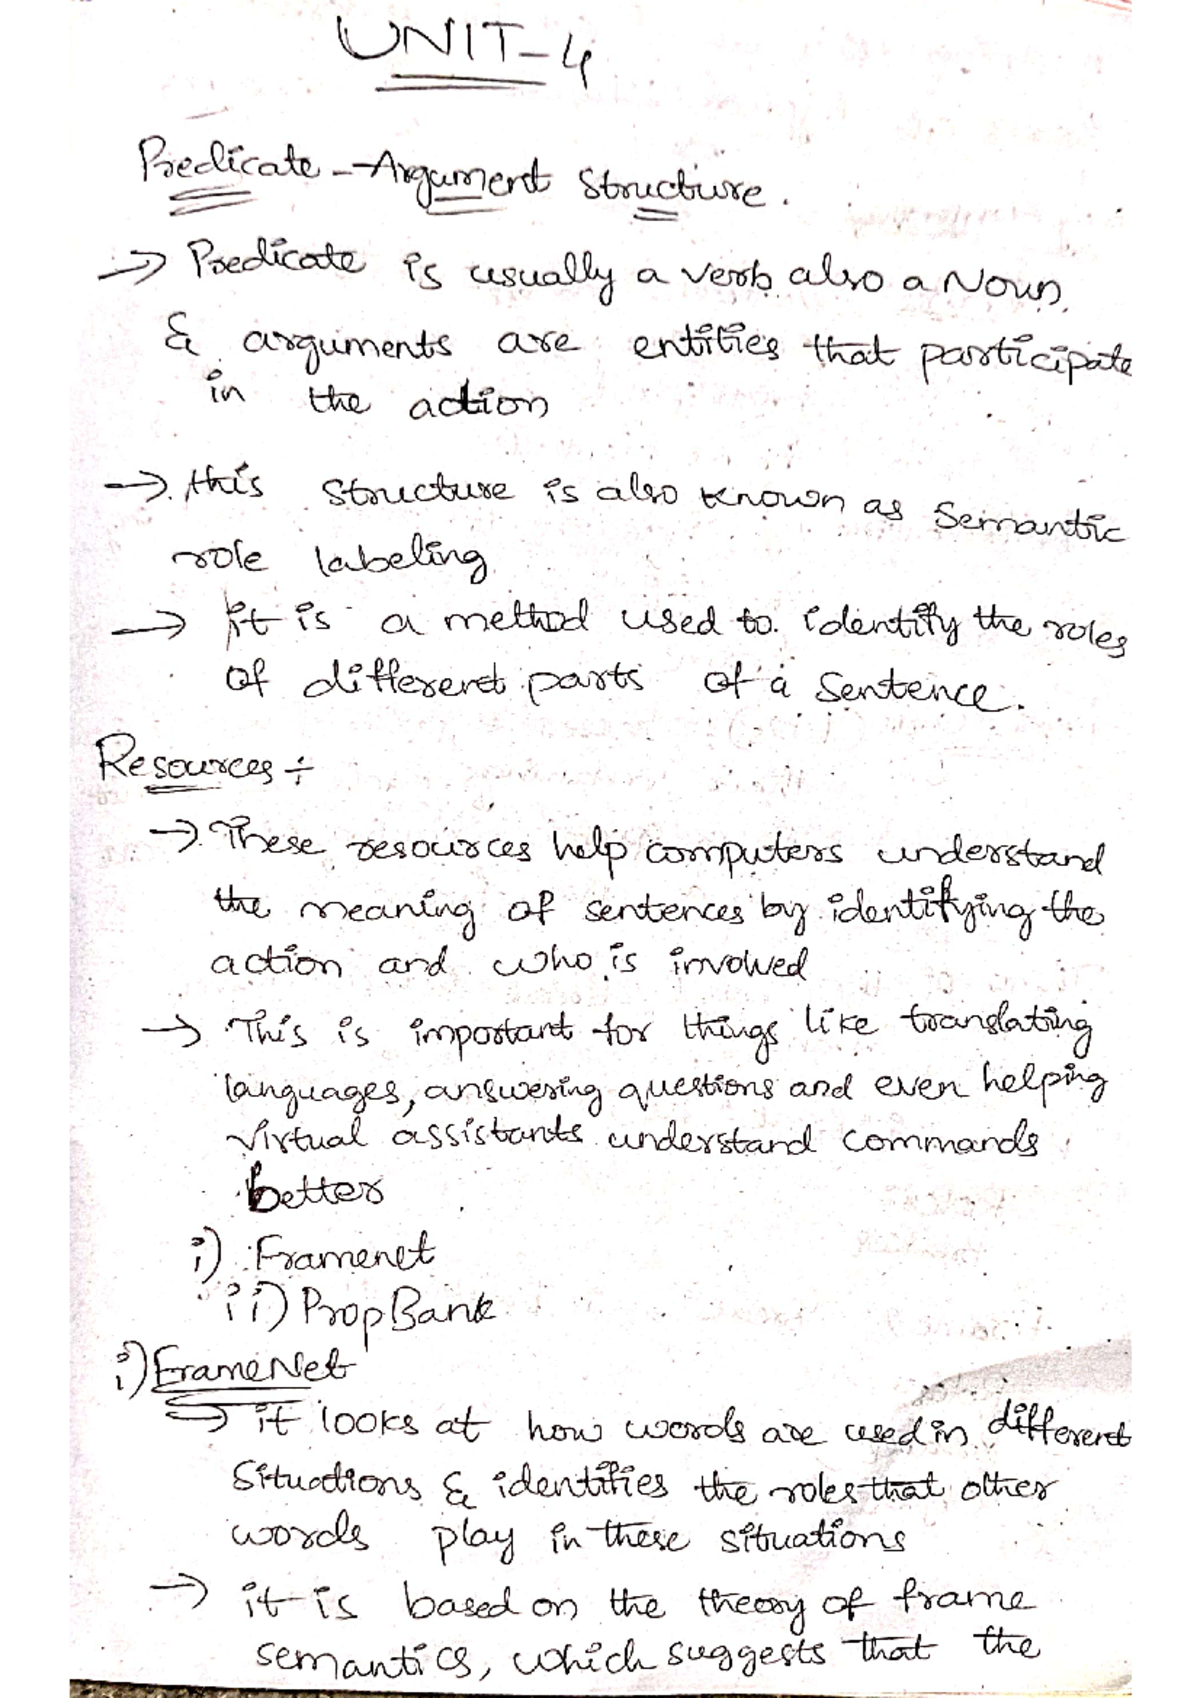 UNIT-4
Predicate-Argument Structure.
→ Predicate is usually a verb also a Noun
& arguments are entities that participate
in the action
→ this structure is also known as Semantic
role labeling
→ it is a method used to identify the roles
of different parts of a sentence.
Resources ÷
→ These resources help computers understand
the meaning of sentences by identifying the
action and who is involved
→ This is important for things like translating
languages, answering questions and even helping
virtual assistants understand commands
better
i) Framenet
ii) PropBank
i) FrameNet
→ it looks at how words are used in different
Situations & identifies the roles that other
words play in these situations
→ it is based on the theory of frame
semantics, which suggests that the